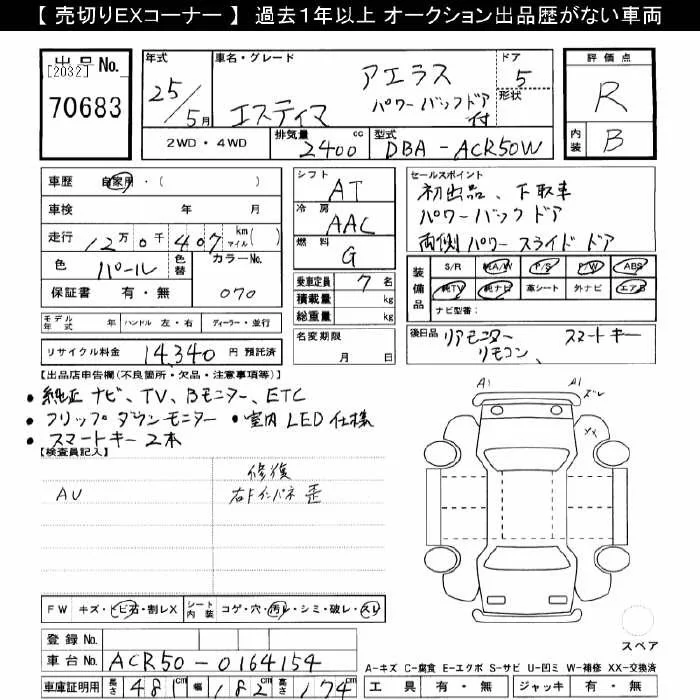 【 売切りEXコーナー 】 過去1年以上 オークション出品歴がない車両
出品 No.
[2032]
70683
年式
25/5月
車名・グレード
エスティマ アエラス
パワーバックドア付
ドア
5
形状
評価点
R
内装
B
2WD・4WD
排気量
2400 cc
型式
DBA-ACR50W
車歴 自家用・( )
車検 年 月
走行 12万0千407 km マイル ( )
色 パール
色替
カラーNo. 070
保証書 有・無
シフト
AT
冷房
AAC
燃料
G
乗車定員 7 名
積載量 kg
総重量 kg
セールスポイント
初出品、下取車
パワーバックドア
両側パワースライドドア
装備品
S/R 純A/W P/S P/W ABS
純TV 純ナビ 革シート 外ナビ エアB
ナビ型番:
モデル年式 年 ハンドル 左・右 ディーラー・並行
リサイクル料金 14,340 円 預託済
名変期限
月 日
後日品 リアモニター スマートキー
リモコン、
【出品店申告欄(不良箇所・欠品・注意事項等)】
・純正ナビ、TV、Bモニター、ETC
・フリップダウンモニター ・室内LED仕様
・スマートキー2本
【検査員記入】
修復
AU
右Fインパネ歪
A1 A1
ズレ
XX
FW キズ・ヒビ石・割レX シート内装 コゲ・穴・汚レ・シミ・破レ・スレ
登録 No.
車台 No. ACR50-0164154
車庫証明用 長さ 481 cm 幅 182 cm 高さ 174 cm
スペア
A-キズ C-腐食 E-エクボ S-サビ U-凹ミ W-補修 XX-交換済
工具 有・無 ジャッキ 有・無